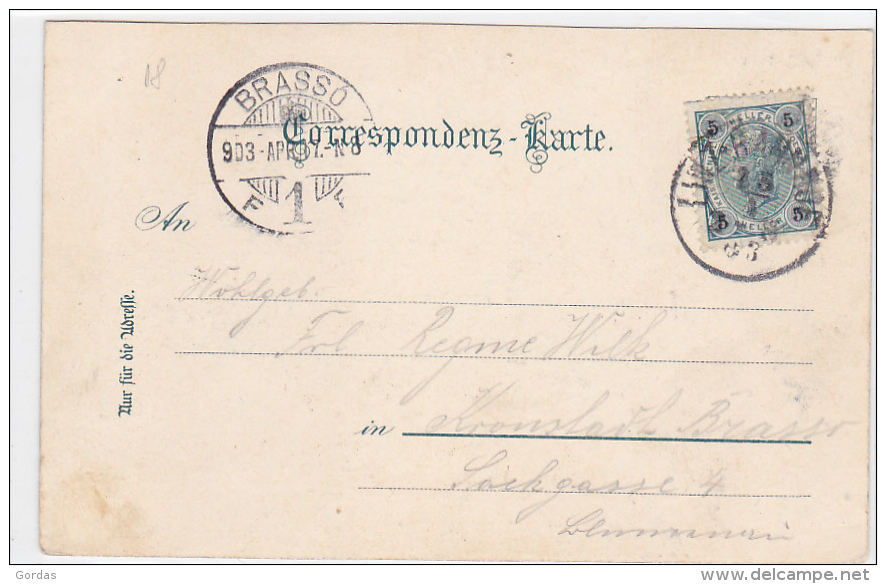 18
BRASSÓ
903-APR.
F 1
Correspondenz-Karte.
5 HELLER 5
5 HELLER 5
An
Nur für die Adresse.
Wohlgeb.
Frl Regine Wilk
in Kronstadt Brasso
4
Gordas